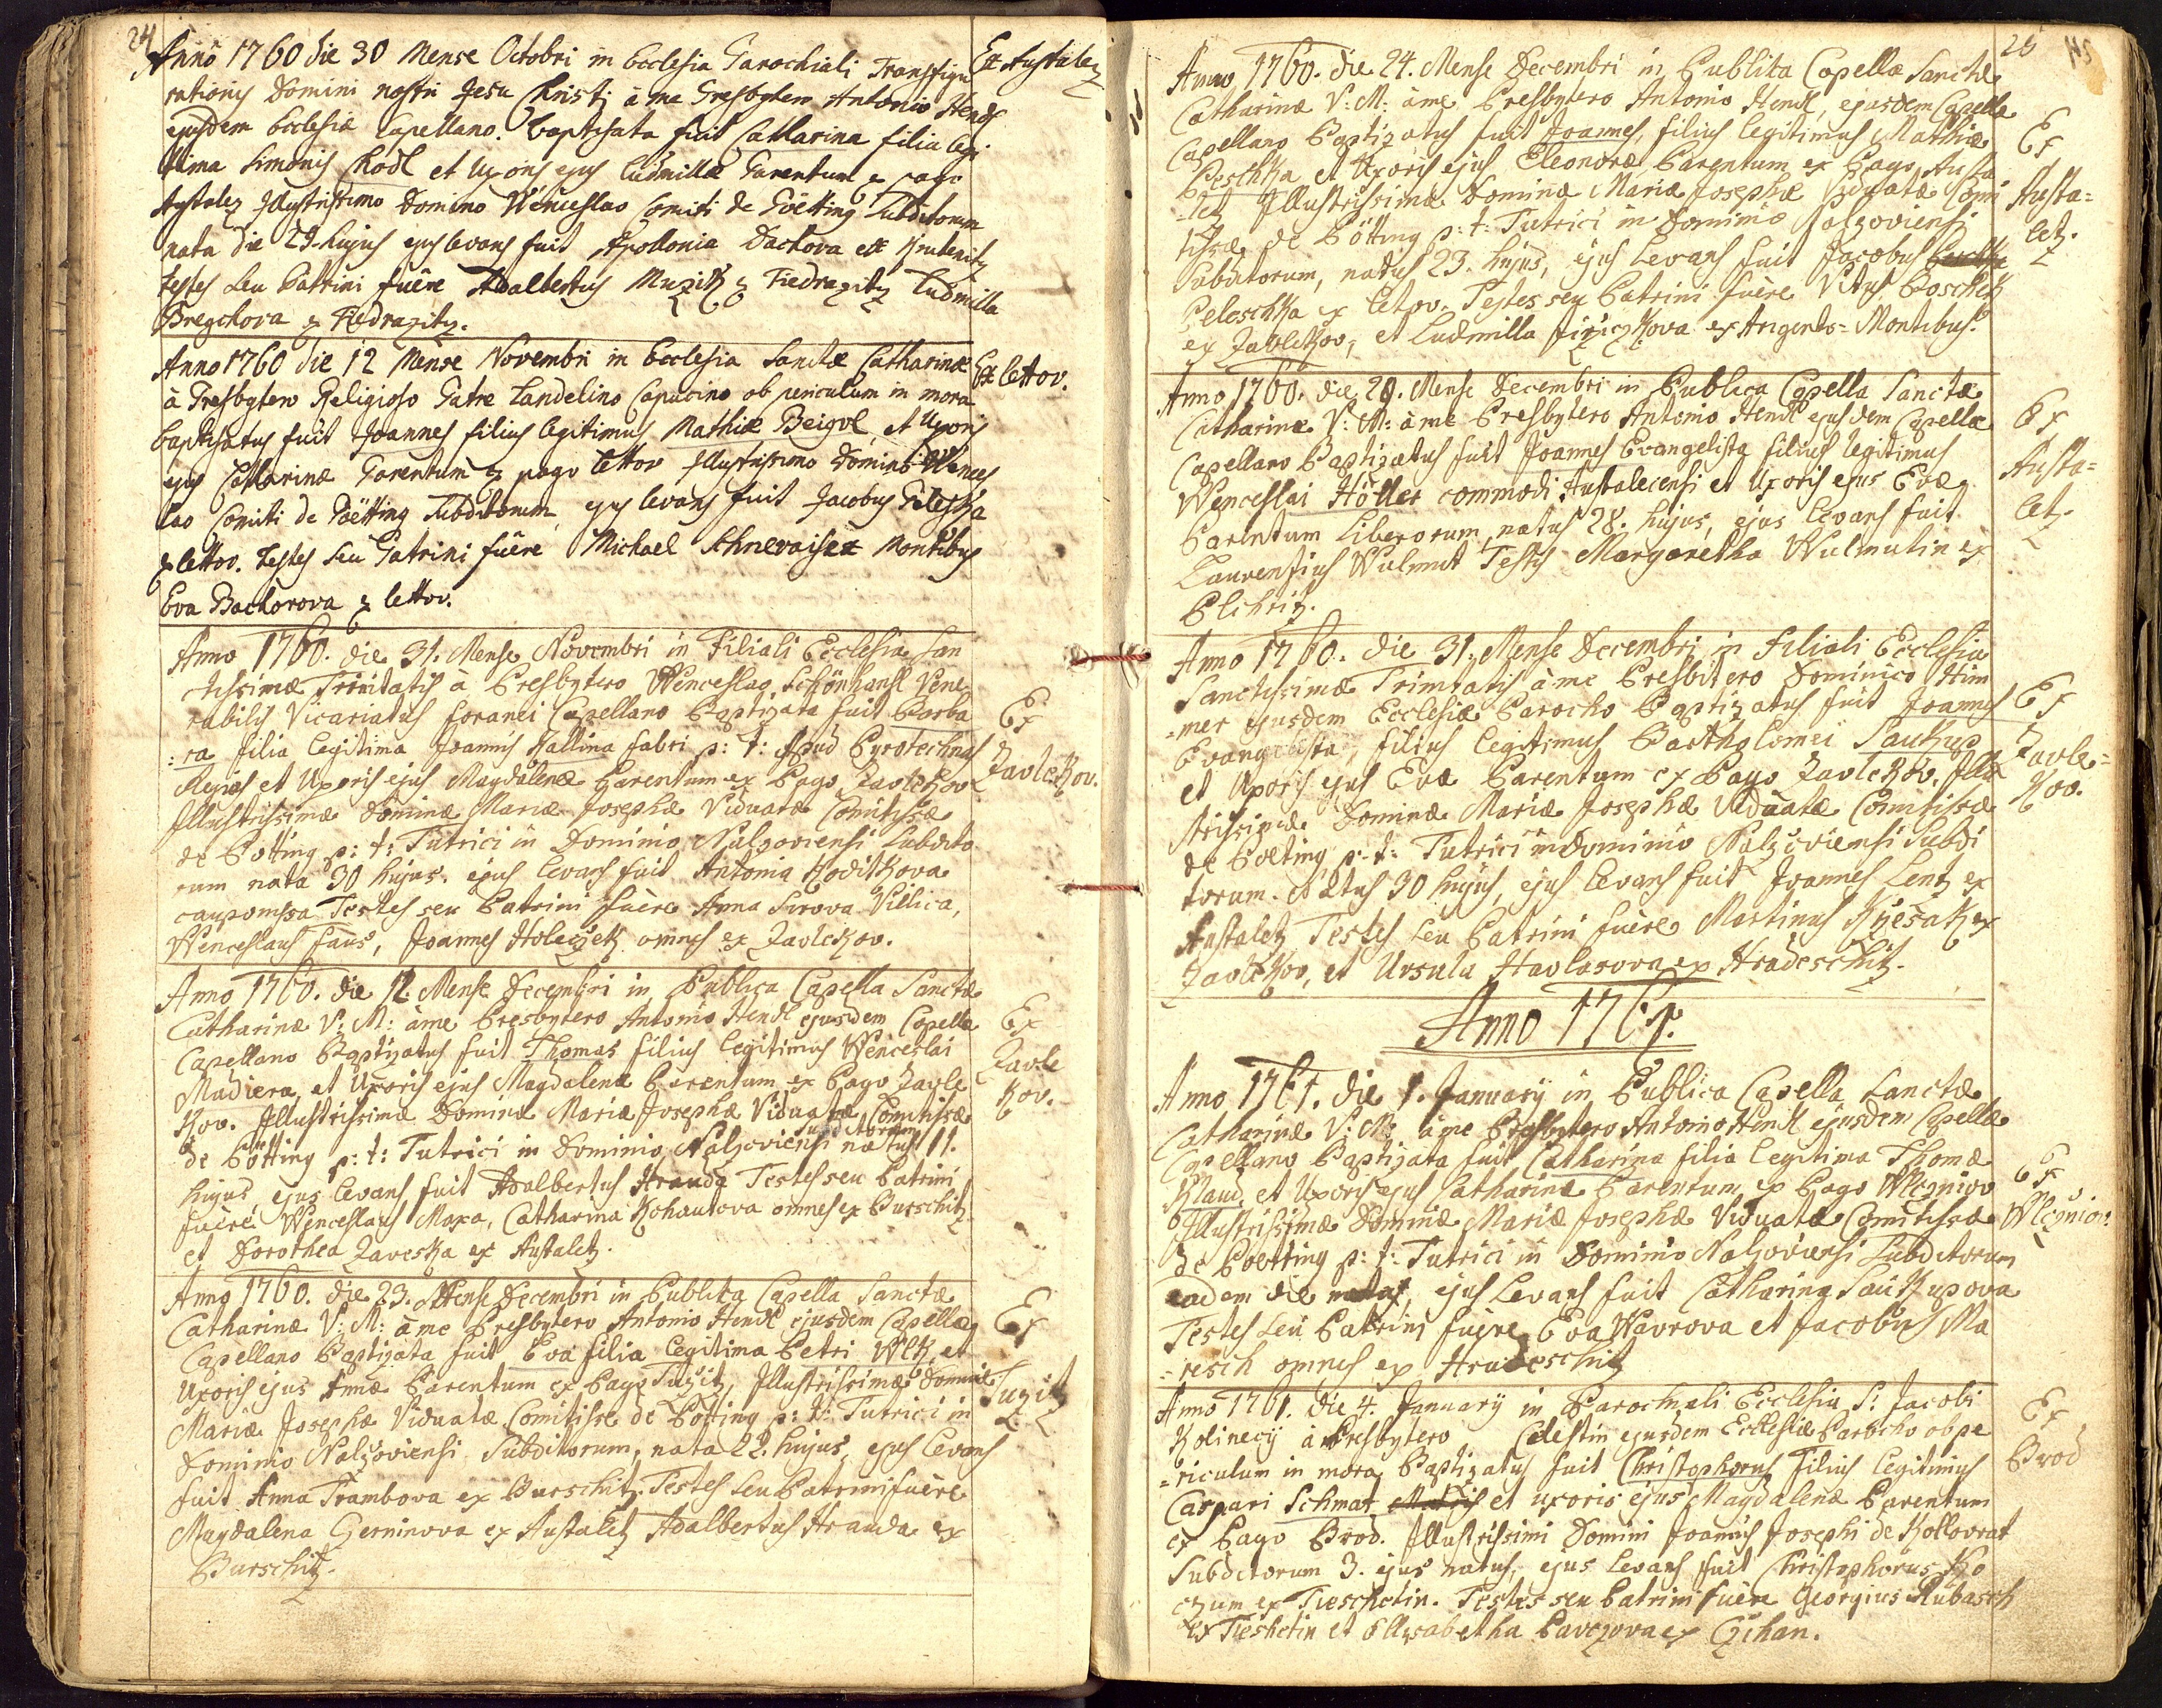 24
Anno 1760 die 30 Mense Octobri in Ecclesia Parochiali Transfigu
Ex Austalez
rationis Domini nostri Jesu Christi à me Presbytero Antonio Hendl
ejusdem Ecclesiæ Capellano. baptisata fuit Catharina filia legi
ttima Simonis Chodl et Uxoris ejus Ludmillæ Parentum ex pago
Austalez Illustrissimo Domino Wenceslao Comiti de Pötting Subditorum
nata die 29. hujus ejus levans fuit Apollonia Dachova ex Krutenitz
testes seu Patrini fuêre Adalbertus Muzik ex Tiedrazitz Ludmilla
Bregchova ex Tiedrazitz.
Anno 1760 die 12 Mense Novembri in Ecclesia Sanctæ Catharinæ
Ex lettov.
à Presbytero Religioso Patre Landelino Capucino ob periculum in mora
baptisatus fuit Joannes filius legitimus Mathiæ Beigol et Uxoris
ejus Catharinæ Parentum ex pago lettov Illustrissimo Domino Wences
lao Comiti de Pötting Subditorum ejus levans fuit Jacobus Peleska
ex lettov. testes seu Patrini fuêre Michael Schnevais ex Montibus
Eva Bachorova ex lettov.
Anno 1760. die 31. Mense Novembri in Filiali Ecclesia San
ctissimæ Trinitatis à Presbytero Wenceslao Schönhansl Vene
rabilis Vicariatus foranei Capellano Baptizata fuit Barba
Ex
:ra filia legitima Joannis Kallina fabri p: t: Apud Pyrotechnas
Zavlekov.
Regias et Uxoris ejus Magdalenæ Parentum ex Pago Zavlekov
Illustrissimæ Dominæ Mariæ Josephæ Viduatæ Comitissæ
de Pötting p: t: Tutrici in Dominio Nalzoviensi Subdito
rum nata 30 hujus. ejus levans fuit Antonia Koditkova
caupomssa Testes seu Patrini fuère Anna Surova Villica,
Wenceslaus Faus, Joannes Holeczek omnes ex Zavlekov.
Anno 1760. die 12. Mense Decembri in Publica Capella Sanctæ
Catharinæ V: M: àme Presbytero Antonio Hendl ejusdem Capellæ
Ex
Capellano Baptizatus fuit Thomas filius legitimus Wenceslai
Zavle
Madiera, et Uxoris ejus Magdalenæ Parentum ex Pago Zavle
kov.
kov. Illustrissimæ Dominæ Mariæ Josephæ Viduatæ Comitissæ
subditorum
de Pötting p: t: Tutrici in Dominio Nalzoviensi natus 11.
hujus, ejus levans fuit Adalbertus Hrauda Testes seu Patrini
fuère Wenceslaus Maxa, Catharina Kohautova omnes ex Burschitz
et Dorothea Zaveska ex Austaletz.
Anno 1760. die 23. Mense Decembri in Publica Capella Sanctæ
Catharinæ V: M: àme Presbytero Antonio Hendl ejusdem Capellæ
Ex
Capellano Baptizata fuit Eva filia legitima Petri Wlk, et
Uxoris ejus Annæ Parentum ex Pago Tuzitz, Illustrissimæ Dominæ
Tuzitz
Mariæ Josephæ Viduatæ Comitissæ de Pötting p: t: Tutrici in
Dominio Nalzoviensi Subditorum, nata 22. hujus, ejus levans
fuit Anna Trambova ex Burschitz. Testes seu Patrini fuère
Magdalena Gerninova ex Austaletz Adalbertus Hrauda ex
Burschitz.
25
Anno 1760. die 24. Mense Decembri in Publica Capella Sanctæ
Catharinæ V: M: àme Presbytero Antonio Hendl, ejusdem Capellæ
Capellano Baptizatus fuit Joannes, filius legitimus Mathiæ
Ex
Peschka et Uxoris ejus Eleonoræ, Parentum ex Pago Austa
-letz Illustrissimæ Dominæ Mariæ Josephæ Viduatæ Comi
Austa=
tissæ de Pötting p: t: Tutrici in Dominio Nalzoviensi
letz.
Subditorum, natus 23. hujus, ejus Levans fuit Jacobus
Peleschka ex Letov. Testes seu Patrini fuère Vitus Boschek
ex Zavlekov, et Ludmilla Jiriczkova ex Argenteo=Montibus.
Anno 1760. die 28. Mense Decembri in Publica Capella Sanctæ
Catharinæ V: M: àme Presbytero Antonio Hendl ejusdem Capellæ
Ex
Capellano Baptizatus fuit Joannes Evangelista filius legitimus
Austa=
Wenceslai Höller commodi Austalecensi et Uxoris ejus Evæ
letz.
Parentum Liberorum, natus 28. hujus, ejus levans fuit
Laurensius Wulmut Testis Margaretha Wulmutin ex
Elchritz.
Anno 1760. die 31. Mense Decembri in filiali Ecclesia
Sanctissimæ Trinitatis àme Presbitero Dominico Him
-mer ejusdem Ecclesiæ Parocho Baptizatus fuit Joannes
Ex
Evangelista, filius legitimus Bartholomei Saukup
Zavle=
et Uxoris ejus Evæ Parentum ex Pago Zavlekov. Illu
kov.
strissimæ Dominæ Mariæ Josephæ Viduatæ Comitissæ
de Poeting p: t: Tutrici in Dominio Nalzoviensi Subdi
torum. natus 30 hujus, ejus levans fuit Joannes Lentz ex
Austaletz Testes seu Patrini fuère Martinus Kjesak ex
Zavlekov, et Ursula Havlasova ex Hradeschitz.
Anno 1761.
Anno 1761. die 1. January in Publica Capella Sanctæ
Catharinæ V: M: àme Presbytero Antonio Hendl ejusdem Capellæ
Capellano Baptizata fuit Catharina filia legitima Thomæ
Klaud, et Uxoris ejus Catharinæ Parentum ex Pago Wlczniov
Ex
Illustrissimæ Dominæ Mariæ Josephæ Viduatæ Comitissæ
Wlczniov.
de Poetting p: t: Tutrici in Dominio Nalzoviensi Subditorum
eadem die nata, ejus Levans fuit Catharina Saukupova
Testes seu Patrini fuère Eva Wavrova et Jacobus Ma
-resch omnes ex Hradeschitz
Anno 1761. die 4. January in Parochiali Ecclesia S: Jacobi
Ex
Kolinecÿ à Presbytero Celestin ejusdem Ecclesiæ Parocho ob pe
-riculum in mora Baptizatus fuit Christophorus filius legitimus
Brod
Caspari Schmat et uxoris ejus Magdalenæ Parentum
ex Pago Brod. Illustrissimi Domini Joannis Josephi de Kollovrat
Subditorum 3. ejus natus, ejus levans fuit Christophorus Ko
czum ex Tieschetin. Testes seu Patrini fuère Georgius Kubasch
ex Tieshetin et Ellisabetha Pavczova ex Czihan.